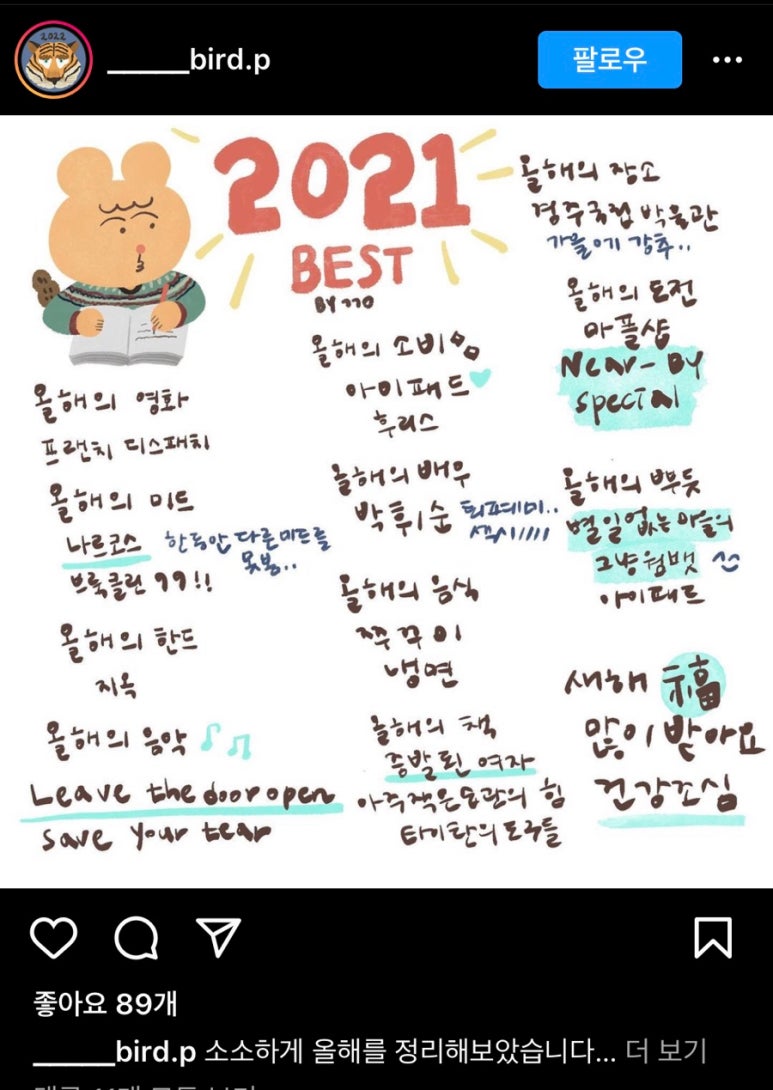 2022
______bird.p
팔로우
2021
BEST
올해의 영화
프렌치 디스패치
올해의 미드
나르코스
한동안 다른미드를
못봄..
브룩클린 99!!
올해의 한드
지옥
올해의 음악
Leave the door open
save your tear
올해의 소비
아이패드
후리스
올해의 배우
박휘순
섹시!!!!
올해의 음식
쭈꾸미
냉면
올해의 책
증발된 여자
아주작은습관의 힘
타이탄의 도구들
올해의 장소
경주국립박물관
가을에 강추..
올해의 도전
마플샵
Near-by
special
올해의 뿌듯
별일없는 마을의
그냥웜뱃
아이패드
새해 福
많이 받아요
건강조심
좋아요 89개
______bird.p 소소하게 올해를 정리해보았습니다... 더 보기